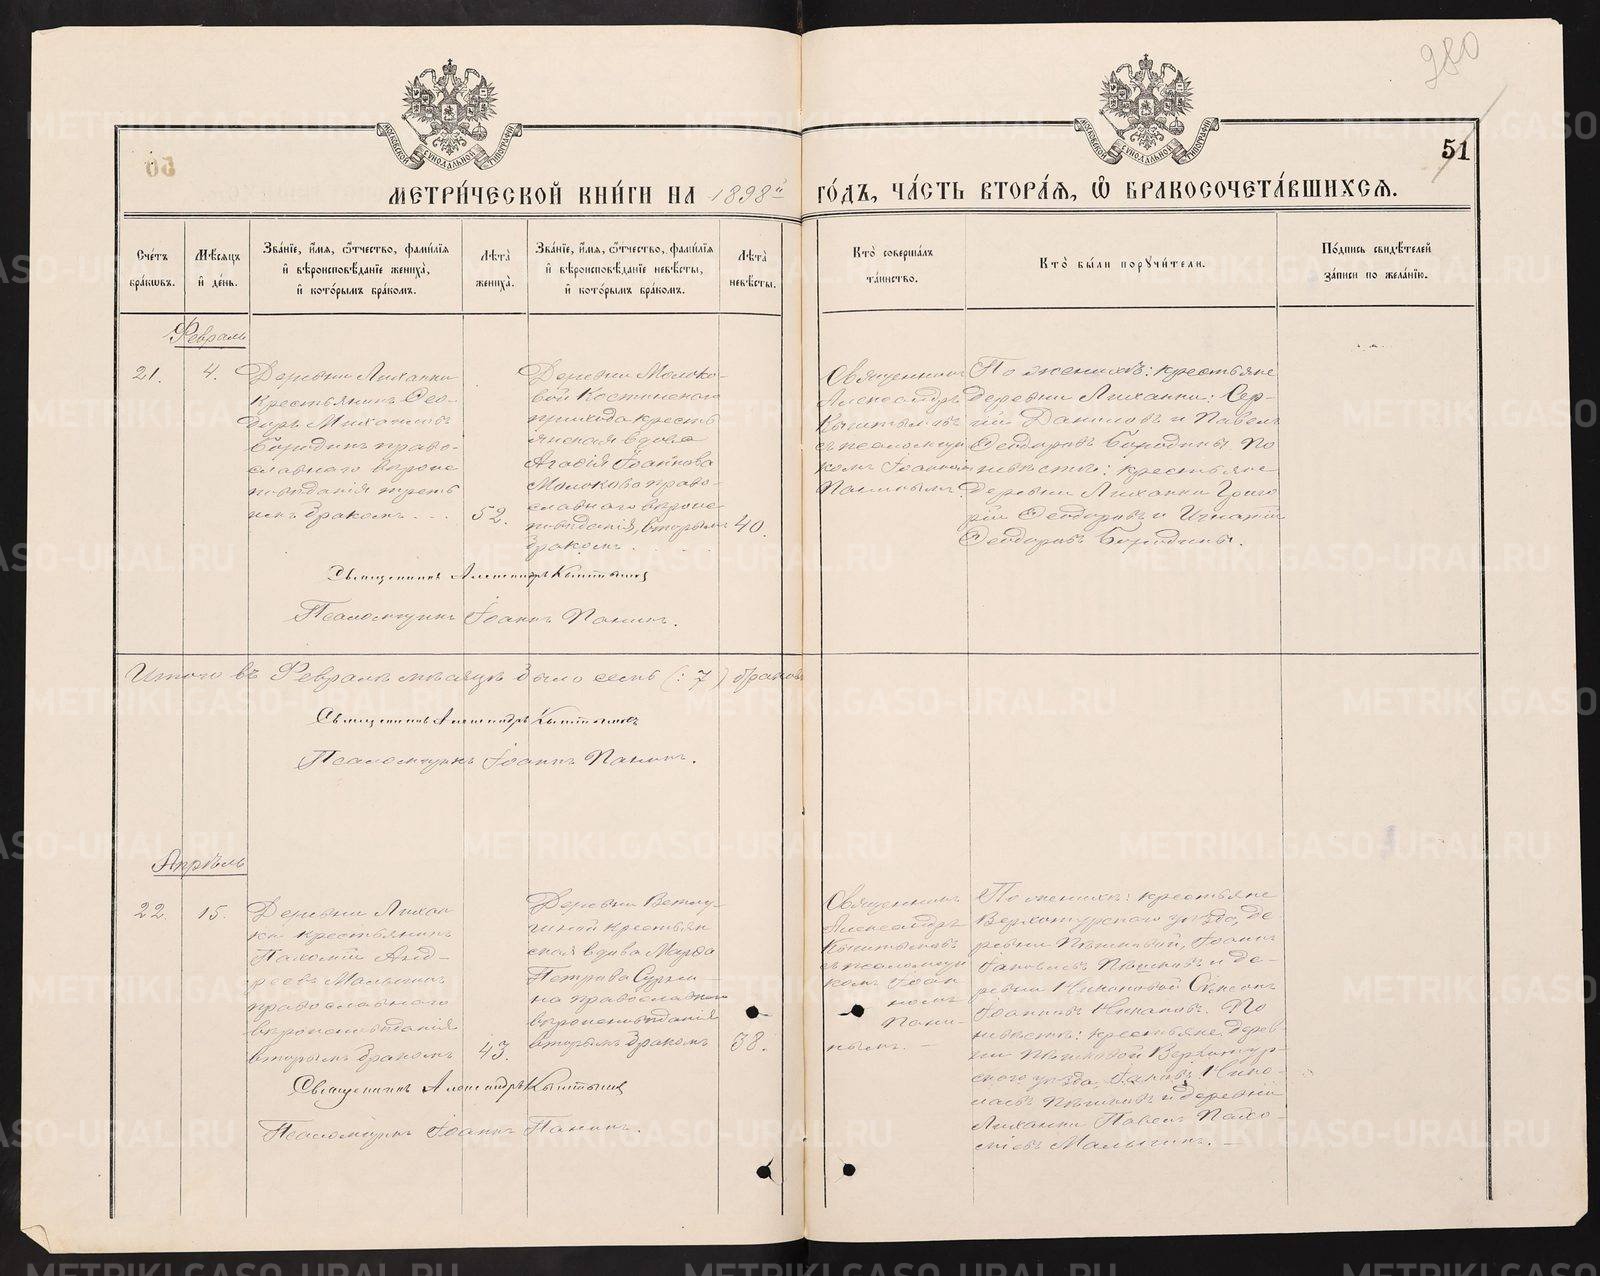 280
51
50
МОСКОВСКОЙ СѴНОДАЛЬНОЙ ТИПОГРАФІИ
МОСКОВСКОЙ СѴНОДАЛЬНОЙ ТИПОГРАФІИ
МЕТРИ́ЧЕСКОЙ КНИ́ГИ НА 1898й ГО́ДЪ, ЧА́СТЬ ВТОРА́Я, Ѿ БРАКОСОЧЕТА́ВШИХСЯ.
Сче́тъ бра́ковъ.
Мѣ́сяцъ и де́нь.
Зва́нїе, и́мя, ѻ́тчество, фами́лїя
и вѣроисповѣ́данїе жениха́,
и кото́рымъ бра́комъ.
Лѣта̀ жениха̀.
Зва́нїе, и́мя, ѻ́тчество, фами́лїя
и вѣроисповѣ́данїе невѣ́сты,
и кото́рымъ бра́комъ.
Лѣта̀ невѣ́сты.
Кто̀ соверша́лъ
та́инство.
Кто̀ бы́ли порꙋчи́тели.
По́дпись свидѣ́телей
за́писи по жела́нїю.
Февраль
21.
4.
Деревни Лиханки
крестьянинъ Ѳео-
доръ Михаиловъ
Бородинъ право-
славнаго вѣроис
повѣданія треть
имъ бракомъ.
52.
Деревни Молоко-
вой Костинскаго
прихода кресть
янская вдова
Агафія Іоаннова
Молокова право-
славнаго вѣроис-
повѣданія, вторымъ
бракомъ.
40.
Священникъ
Александръ
Кыштымовъ
съ псаломщи
комъ Іоанномъ
Панинымъ.
По женихѣ: крестьяне
деревни Лиханки: Сер-
гій Даниловъ и Павелъ
Ѳеодоровъ Бородины. По
невѣстѣ: крестьяне
деревни Лиханки Григо
рій Ѳеодоровъ и Игнатій
Ѳеодоровъ Бородины.
Священникъ Александръ Кыштымовъ
Псаломщикъ Іоаннъ Панинъ.
Итого въ Февралѣ мѣсяцѣ было семь (: 7 ) браковъ
Священникъ Александръ Кыштымовъ
Псаломщикъ Іоаннъ Панинъ.
Апрѣль
22.
15.
Деревни Лихан
ки крестьянинъ
Пахомій Анд-
реевъ Малыгинъ
православнаго
вѣроисповѣданія
вторымъ бракомъ
43.
Деревни Ветлу-
гиной крестьян
ская вдова Марѳа
Петрова
на православнаго
вѣроисповѣданія
вторымъ бракомъ
38.
Священникъ
Александръ
Кыштымовъ
съ псаломщи
комъ Іоан
номъ
Пани-
нымъ.
По женихѣ: крестьяне
Верхотурскаго уѣзда, де
ревни Пѣшковой, Іоаннъ
Іаковлевъ Пѣшковъ и де-
ревни Никоновой
Іоанновъ По
невѣстѣ: крестьяне дерев
ни Пѣшковой Верхотур-
скаго уѣзда, Іаковъ Нико-
лаевъ Пѣшковъ и деревни
Лиханки Павелъ Пахо-
міевъ Малыгинъ.
Священникъ Александръ Кыштымовъ
Псаломщикъ Іоаннъ Панинъ.
METRIKI.GASO-URAL.RU